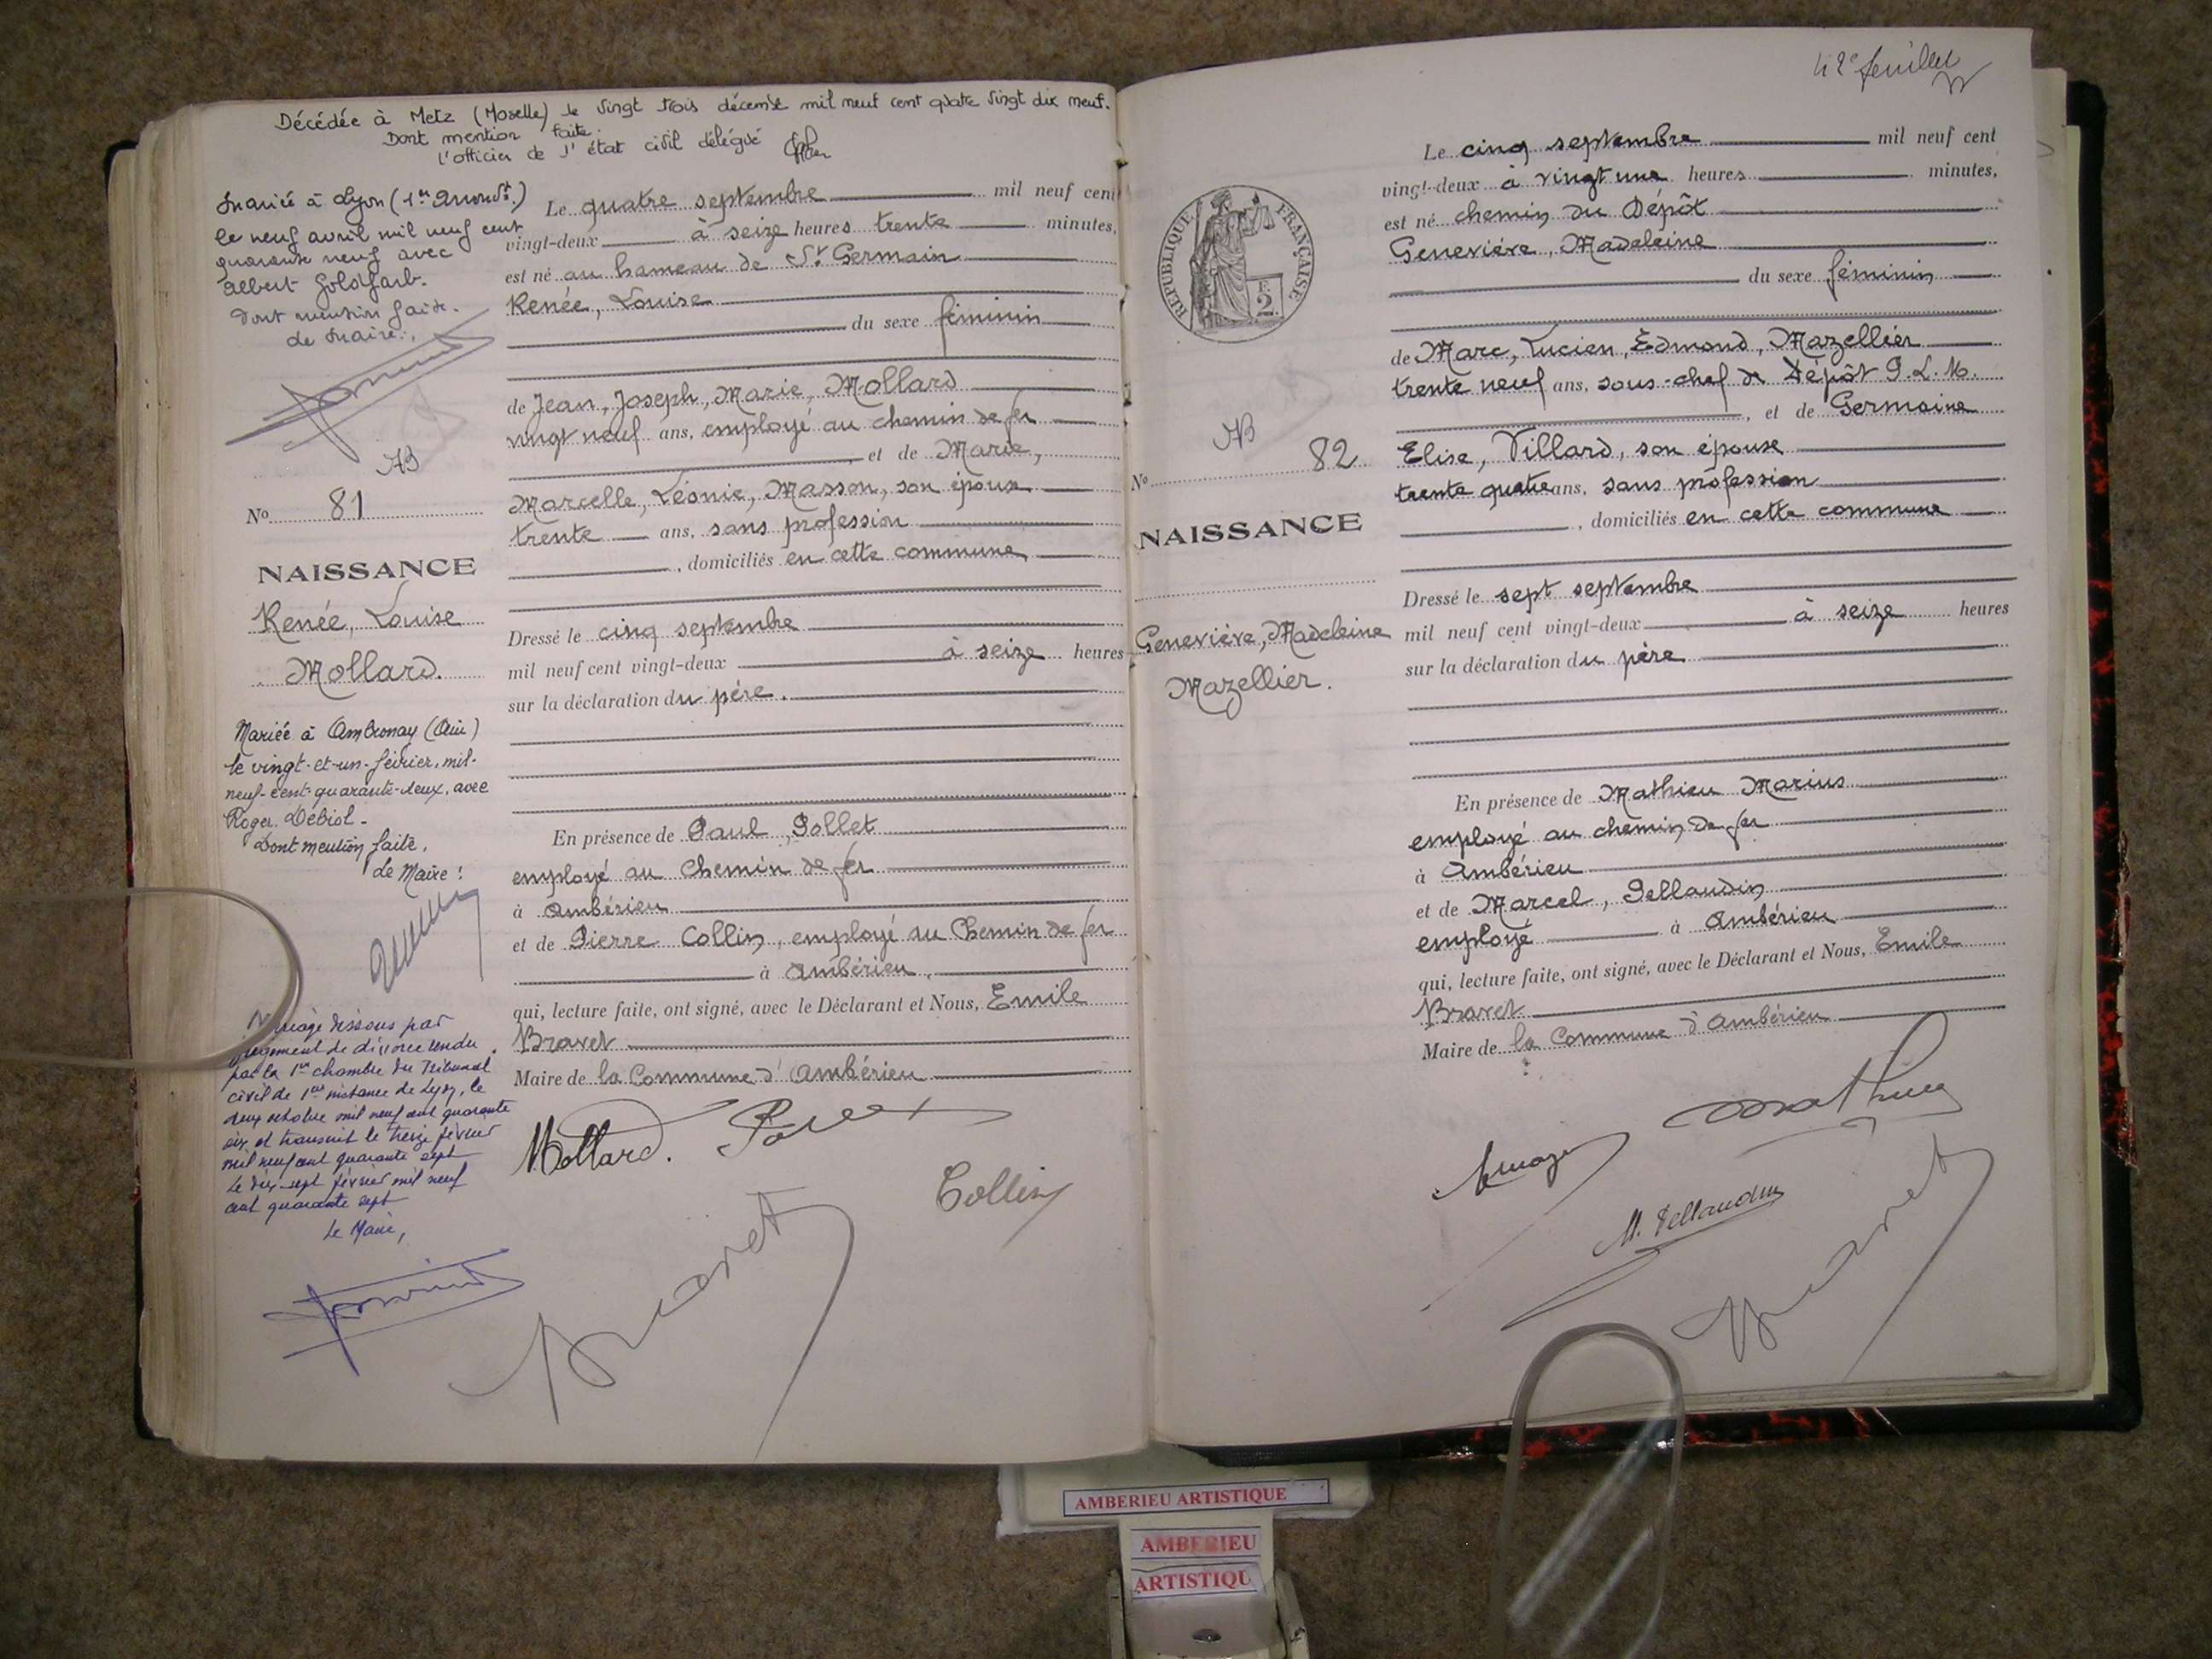 Décédée à Metz (Moselle) le vingt trois décembre mil neuf cent quatre vingt dix neuf.
Dont mention faite.
L'officier de l'état civil délégué
Mariée à Lyon (1er Arrondt.)
le neuf avril mil neuf cent
quarante neuf avec
Albert Goldfarb.
Dont mention faite.
Le Maire:
AB
No 81
NAISSANCE
Renée, Louise
Mollard.
Mariée à Ambronay (Ain)
le vingt-et-un-février, mil-
neuf-cent-quarante-deux, avec
Roger Débiol-
Dont mention faite,
Le Maire:
Mariage dissous par
jugement de divorce rendu
par la 1ere chambre du Tribunal
civil de 1ere instance de Lyon, le
deux octobre mil neuf cent quarante
six et transcrit le treize février
mil neuf cent quarante sept
Le dix-sept février mil neuf
cent quarante sept
Le Maire,
Le quatre septembre mil neuf cent
vingt-deux à seize heures trente minutes,
est né au hameau de St Germain
Renée, Louise
du sexe féminin
de Jean, Joseph, Marie, Mollard
vingt neuf ans, employé au chemin de fer
, et de Marie,
Marcelle, Léonie, Masson, son épouse
trente ans, sans profession
, domiciliés en cette commune
Dressé le cinq septembre
mil neuf cent vingt-deux à seize heures
sur la déclaration du père.
En présence de Paul, Pollet
employé au Chemin de fer
à Ambérieu
et de Pierre Collin, employé au Chemin de fer
à Ambérieu,
qui, lecture faite, ont signé, avec le Déclarant et Nous, Emile
Bravet
Maire de la Commune d'Ambérieu
Mollard.
Collin
Bravet
42e feuillet
RÉPUBLIQUE FRANÇAISE
2
AB
No 82
NAISSANCE
Geneviève, Madeleine
Mazellier.
Le cinq septembre mil neuf cent
vingt-deux à vingt une heures minutes,
est né chemin du Dépôt
Geneviève, Madeleine
du sexe féminin
de Marc, Lucien, Edmond, Mazellier
trente neuf ans, sous-chef de Dépôt P.L.M.
, et de Germaine
Elise, Villard, son épouse
trente quatre ans, sans profession
, domiciliés en cette commune
Dressé le sept septembre
mil neuf cent vingt-deux à seize heures
sur la déclaration du père
En présence de Mathieu Marius
employé au chemin de fer
à Ambérieu
et de Marcel, Pellaudin
employé à Ambérieu
qui, lecture faite, ont signé, avec le Déclarant et Nous, Emile
Bravet
Maire de la Commune d'Ambérieu
Mathieu
M. Pellaudin
Bravet
AMBERIEU ARTISTIQUE
AMBERIEU
ARTISTIQU